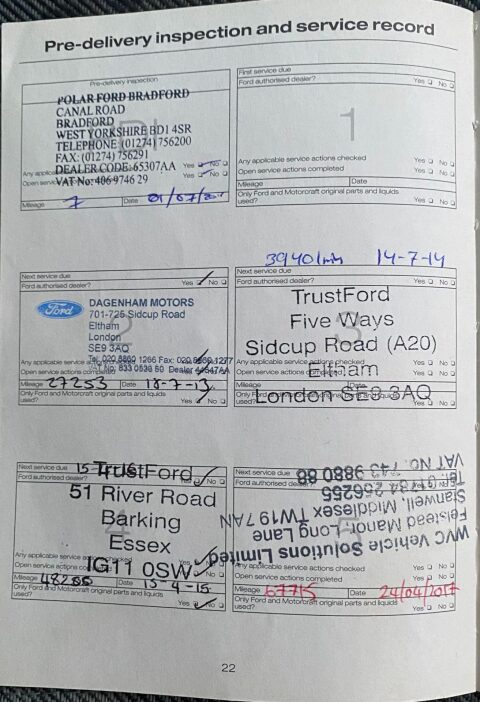 Pre-delivery inspection and service record
Pre-delivery inspection
POLAR FORD BRADFORD
CANAL ROAD
BRADFORD
WEST YORKSHIRE BD1 4SR
TELEPHONE: (01274) 756200
FAX: (01274) 756291
DEALER CODE: 65307AA Yes No
Any applicable
Open service Yes No
VAT No: 406 9746 29
Mileage 7 Date 01/07/
Only Ford and Motorcraft original parts and liquids
used? Yes No
First service due
Ford authorised dealer? Yes No
1
Any applicable service actions checked Yes No
Open service actions completed Yes No
Mileage Date
Only Ford and Motorcraft original parts and liquids
used? Yes No
Next service due
Ford authorised dealer? Yes No
Ford DAGENHAM MOTORS
701-725 Sidcup Road
Eltham
London
SE9 3AQ
Tel: 020 8860 1266 Fax: 020 8860 1277
Any applicable service actions
VAT No: 833 0536 80 Dealer
Open service actions completed
Mileage 27253 Date 18-7-13
Only Ford and Motorcraft original parts and liquids
used? Yes No
39401 14-7-14
Next service due
Ford authorised dealer? Yes No
TrustFord
Five Ways
3
Sidcup Road (A20)
Any applicable service actions checked Yes No
Eltham
Open service actions completed Yes No
Mileage Date
London SE9 3AQ
used? Yes No
Next service due 15
Ford authorised dealer? Yes No
TrustFord
51 River Road
Barking
4
Essex
Any applicable service actions
IG11 0SW
Open service actions No
Mileage 48255 Date 13-4-15
Only Ford and Motorcraft original parts and liquids
used? Yes No
Next service due
Ford authorised dealer?
VAT NO. 743 9880 88
Tel. 01784 256255
Stanwell, Middlesex TW19 7AN
Felstead Manor, Long Lane
WVC Vehicle Solutions Limited
Any applicable service actions checked Yes No
Open service actions completed Yes No
Mileage 67715 Date 24/04/2017
Only Ford and Motorcraft original parts and liquids
used? Yes No
22